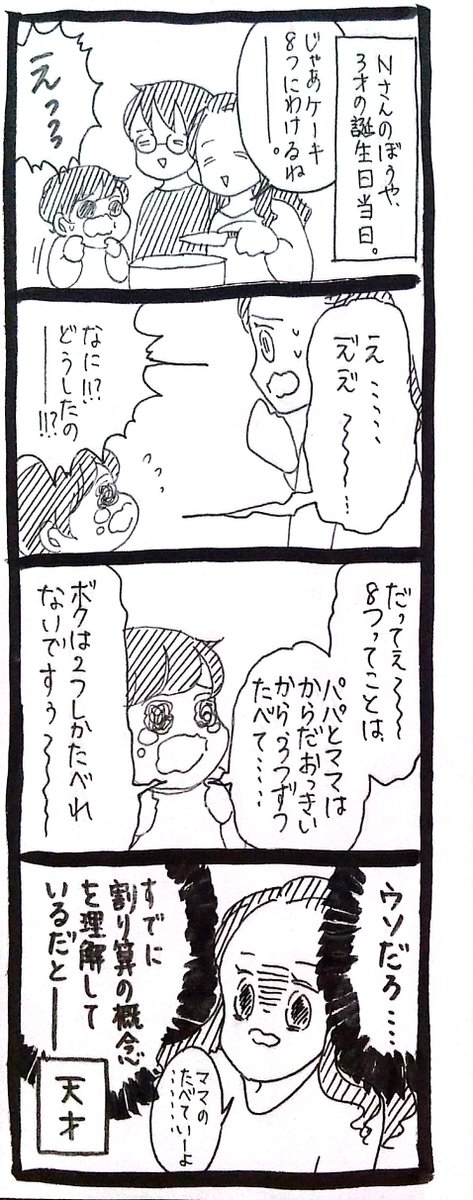 Nさんのぼうや、
3才の誕生日当日。
じゃあケーキ
8つにわけるね
――。
えっろ
え……
ええ〜〜…
なに!!?
どうしたの
――!!?
だってぇ〜〜〜
8つってことは、
パパとママは
からだおっきい
から、3つずつ
たべて……
ボクは2つしかたべれ
ないですぅ〜〜〜
ウソだろ…
すでに
割り算の概念
を理解して
いるだと――
ママの
たべていーよ
……
天才